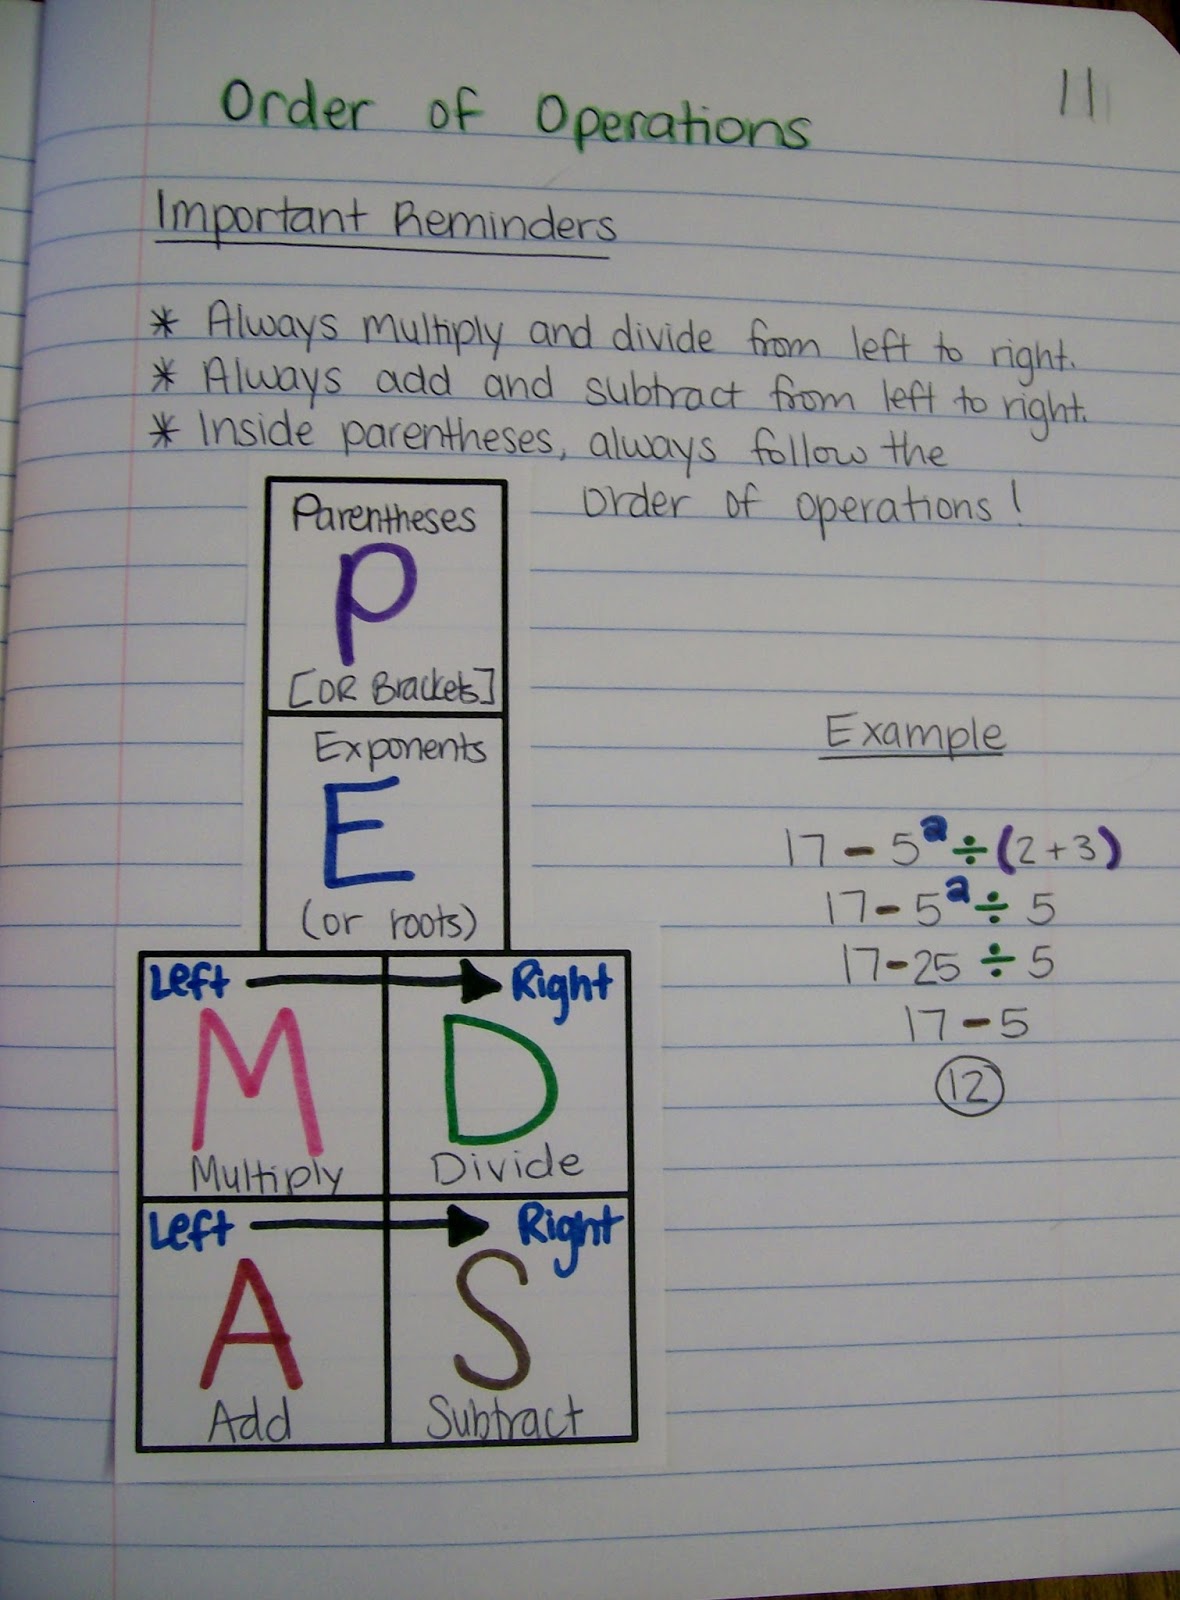 11
Order of Operations
Important Reminders
* Always multiply and divide from left to right.
* Always add and subtract from left to right.
* Inside parentheses, always follow the
order of operations!
Parentheses
P
[OR Brackets]
Exponents
E
(or roots)
Left Right
M D
Multiply Divide
Left Right
A S
Add Subtract
Example
17 - 5² ÷ (2 + 3)
17 - 5² ÷ 5
17 - 25 ÷ 5
17 - 5
12